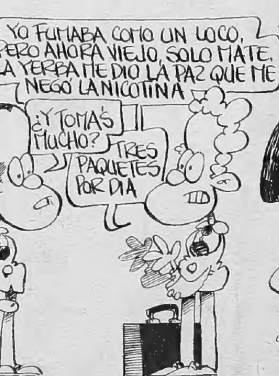 YO FUMABA COMO UN LOCO,
PERO AHORA VIEJO, SOLO MATE.
LA YERBA ME DIO LA PAZ QUE ME
NEGÓ LA NICOTINA
¿Y TOMÁS
MUCHO?
TRES
PAQUETES
POR DIA